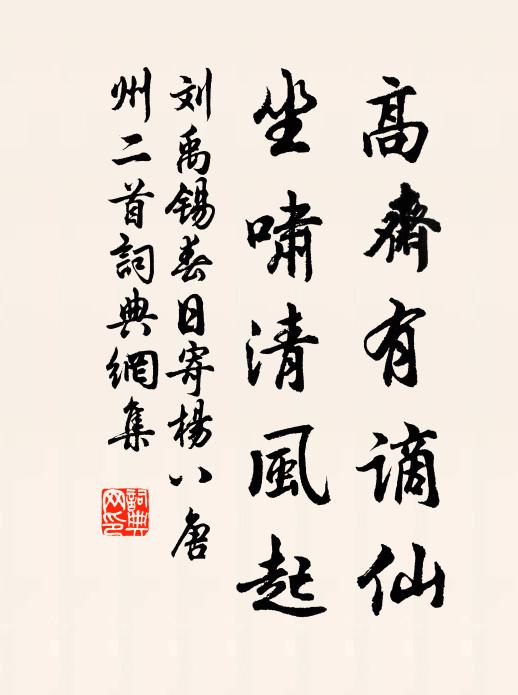 高齋有謫仙
坐嘯清風起
刘禹锡春日寄楊八唐
州二首詞典網集
詞典
网印